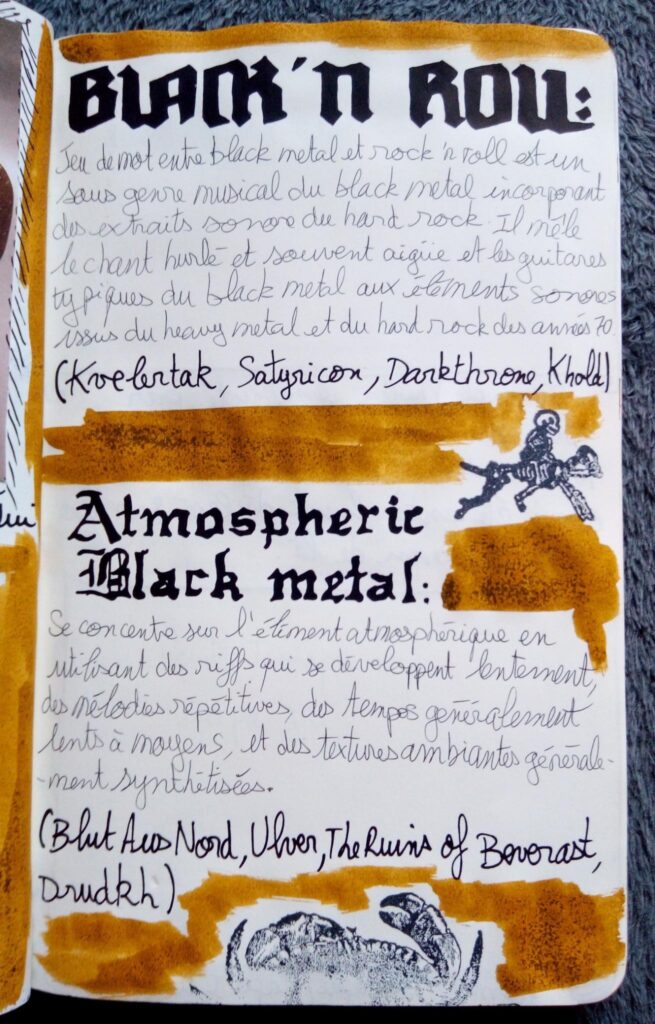 BLACK'N ROLL:
Jeu de mot entre black metal et rock'n roll est un
sous genre musical du black metal incorporant
des extraits sonore du hard rock. Il mêle
le chant hurlé et souvent aigüe et les guitares
typiques du black metal aux éléments sonores
issus du heavy metal et du hard rock des années 70.
(Kvelertak, Satyricon, Darkthrone, Khold)
Atmospheric
Black metal:
Se concentre sur l'élément atmosphérique en
utilisant des riffs qui se développent lentement,
des mélodies répétitives, des tempos généralement
lents à moyens, et des textures ambiantes générale-
-ment synthétisées.
(Blut Aus Nord, Ulver, The Ruins of Beverast,
Drudkh)